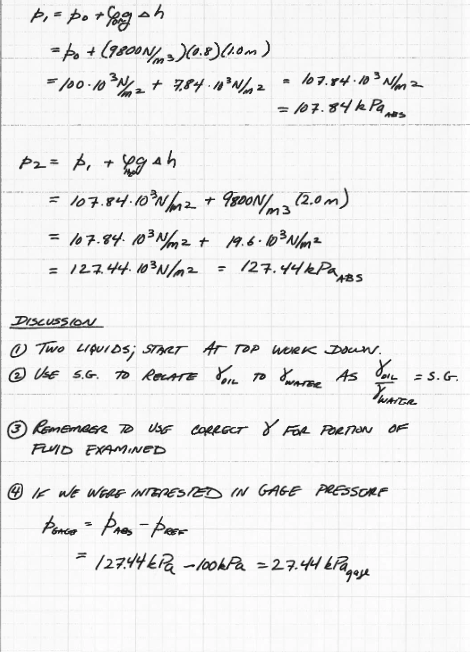 p₁ = p₀ + ρg Δh
= p₀ + (9800 N/m³)(0.8)(1.0m)
= 100·10³ N/m² + 7.84·10³ N/m² = 107.84·10³ N/m²
= 107.84 kPa ABS
p₂ = p₁ + ρg Δh
= 107.84·10³ N/m² + 9800 N/m³ (2.0m)
= 107.84·10³ N/m² + 19.6·10³ N/m²
= 127.44·10³ N/m² = 127.44 kPa ABS
DISCUSSION
① TWO LIQUIDS; START AT TOP WORK DOWN.
② USE S.G. TO RELATE γOIL TO γWATER AS γOIL/γWATER = S.G.
③ REMEMBER TO USE CORRECT γ FOR PORTION OF
FLUID EXAMINED
④ IF WE WERE INTERESTED IN GAGE PRESSURE
pGAGE = pABS - pREF
= 127.44 kPa - 100 kPa = 27.44 kPa gage